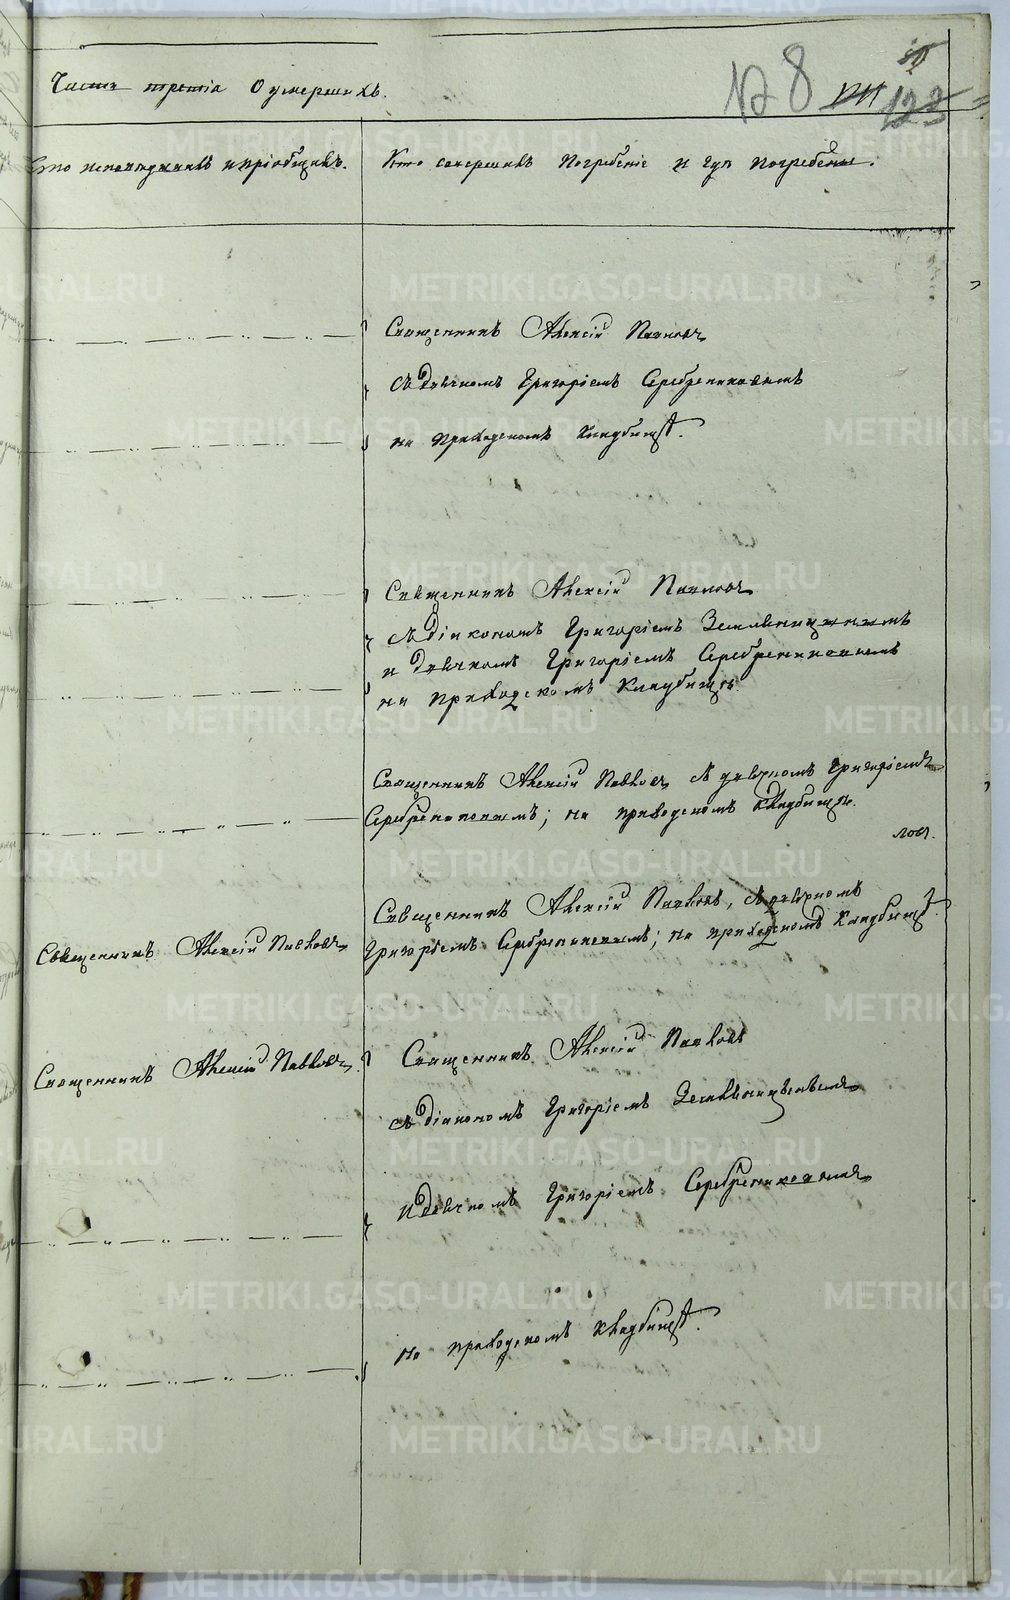 Часть третія О умершихъ.
№ 8
123
Кто исповѣдывалъ и пріобщалъ.
Кто совершалъ погребеніе и гдѣ погребены.
Священникъ Алексій Павловъ
съ дьячкомъ Григоріемъ Серебренниковымъ
на приходскомъ кладбищѣ.
Священникъ Алексій Павловъ
съ діакономъ Григоріемъ Землянициномъ
и дьячкомъ Григоріемъ Серебренниковымъ
на приходскомъ кладбищѣ.
Священникъ Алексій Павловъ, съ дьячкомъ Григоріемъ
Серебренниковымъ; на приходскомъ кладбищѣ.
Священникъ Алексій Павловъ
Священникъ Алексій Павловъ, съ дьячкомъ
Григоріемъ Серебренниковымъ; на приходскомъ кладбищѣ.
Священникъ Алексій Павловъ
Священникъ Алексій Павловъ
съ діакономъ Григоріемъ
и дьячкомъ Григоріемъ Серебренниковымъ
на приходскомъ кладбищѣ.
METRIKI.GASO-URAL.RU